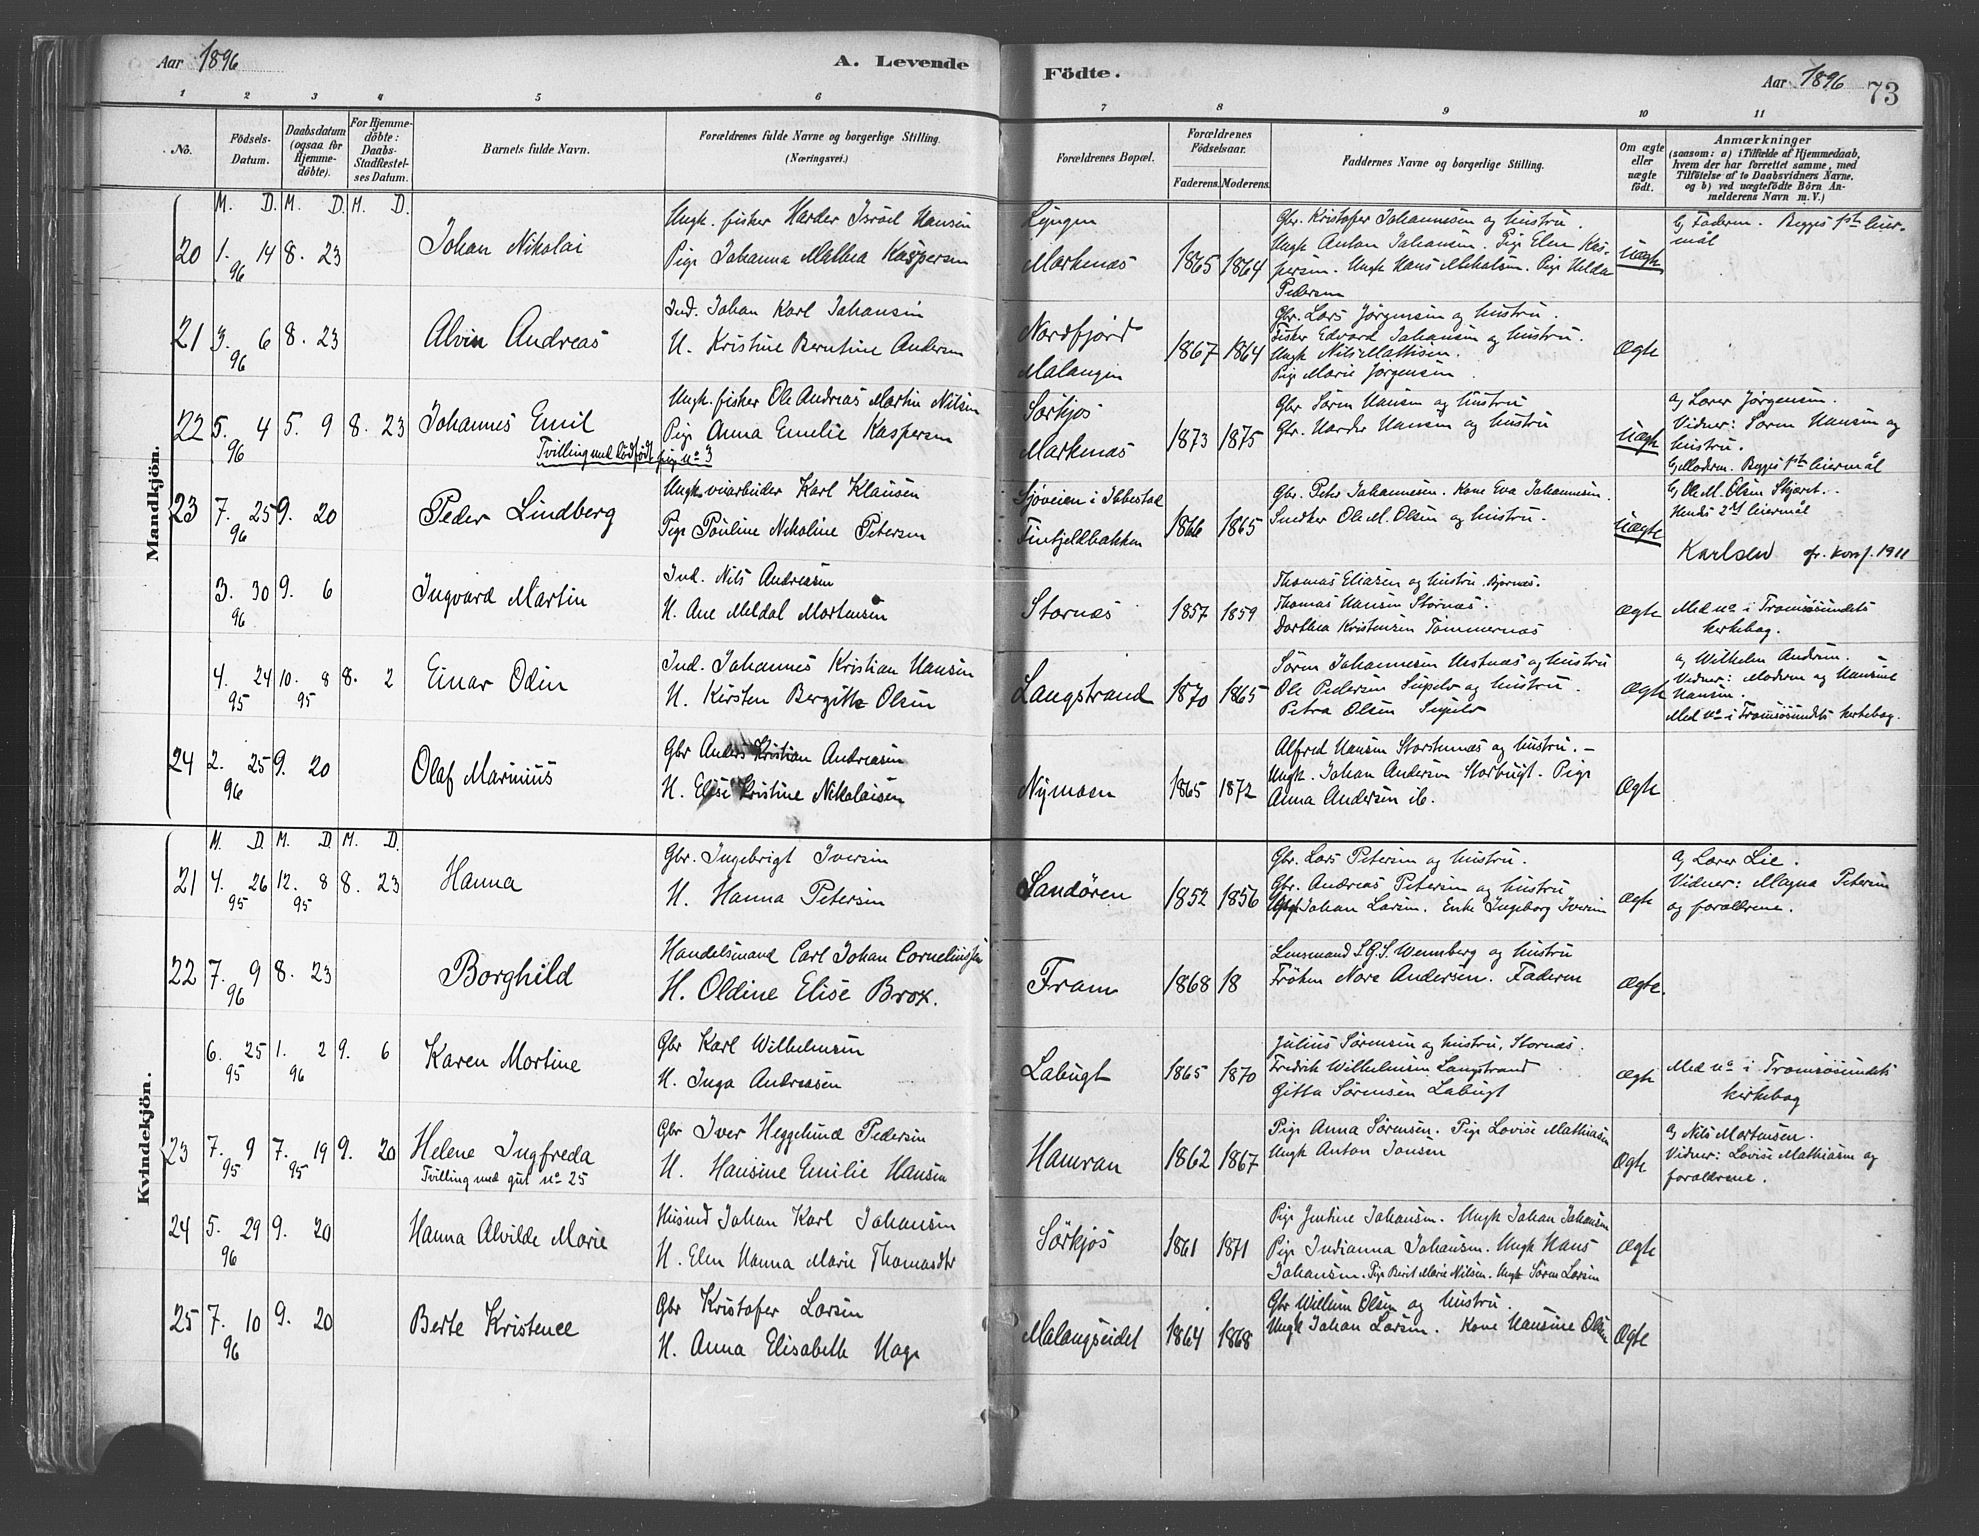 Aar 1896
A. Levende
Födte.
Aar 1896
73
1 2 3 4 5 6 7 8 9 10 11
No.
Födsels-
Datum.
Daabsdatum
(ogsaa for
Hjemme-
döbte).
For Hjemme-
döbte:
Daabs-
Stadfæstel-
ses Datum.
Barnets fulde Navn.
Forældrenes fulde Navne og borgerlige Stilling.
(Næringsvei.)
Forældrenes Bopæl.
Forældrenes
Födselsaar.
Faderens. Moderens.
Faddernes Navne og borgerlige Stilling.
Om ægte
eller
uægte
födt.
Anmærkninger
(saasom: a) i Tilfælde af Hjemmedaab,
hvem der har forrettet samme, med
Tilföielse af to Daabsvidners Navne,
og b) ved uægtefödte Börn An-
melderens Navn m. V.)
Mandkjön.
M. D. M. D. M. D.
20 1. 14 96 8. 23
Johan Nikolai
Ungk. fisker Harder Israel Hansen
Pige Johanna Mathea Kaspersen
Lyngen
Markenæs
1865 1864
Gbr. Kristofer Johannesen og hustru.
Ungk Anton Johansen. Pige Elen Kas-
persen. Ungk Hans Mikalsen. Pige Hilda
Pedersen
Uægte
b, Faderen. Begges 1ste leier-
mål
21 3. 6 96 8. 23
Alvin Andreas
Ind. Johan Karl Johansen
H. Kristine Berntine Andersen
Nordfjord
Malangen
1867 1864
Gbr. Lars Jørgensen og hustru.
Fisker Edvard Johansen og hustru.
Ungk Nils Mattisen.
Pige Marie Jørgensen
Ægte
22 5. 4 96 5. 9 8. 23
Johannes Emil
Tvilling med dödfødt pige no 3
Ungk. fisker Ole Andreas Martin Nilsen
Pige Anna Emilie Kaspersen
Sørkjos
Markenæs
1873 1875
Gbr Søren Hansen og hustru
Gbr. Harder Hansen og hustru
Uægte
a, Lærer Jørgensen.
Vidner: Søren Hansen og
hustru.
b, Moderen. Begges 1ste leiermål
23 7. 25 96 9. 20
Peder Lindberg
Ungk. veiarbeider Karl Klausen
Pige Pauline Nikoline Petersen
Sjøveien i Ibbestad
Finfjeldbakken
1866 1865
Gbr. Peter Johannesen. Kone Eva Johannesen.
Snedker Ole M. Olsen og hustru.
Uægte
b, Ole M. Olsen Skjæret.
Hendes 2det leiermål
Karlsen cfr. konf. 1911
3. 30 96 9. 6
Ingvard Martin
Ind. Nils Andreasen
H. Ane Meldal Mortensen
Stornæs
1857 1859
Thomas Eliasen og hustru. Bjørnæs.
Thomas Hansen Stornæs.
Dorthea Kristensen Tømmernæs
Ægte
Med no i Tromsøsundets
kirkebog.
4. 24 95 10. 8 95 8. 2
Einar Odin
Ind. Johannes Kristian Hansen
H. Kirsten Bergitte Olsen
Langstrand
1870 1865
Søren Johannesen Mestnæs og hustru
Ole Pedersen og hustru.
Petra Olsen
Ægte
a, Wilhelm Andersen.
Vidner: Moderen og Hansine
Hansen.
Med no i Tromsøsundets kirkebog.
24 2. 25 96 9. 20
Olaf Marinius
Gbr Anders Kristian Andreasen
H. Elise Kristine Nikolaisen
Nymoen
1865 1872
Alfred Hansen Storstenæs og hustru. –
Ungk. Johan Andersen Storbugt. Pige
Anna Andersen ib.
Ægte
Kvindekjön.
M. D. M. D. M. D.
21 4. 26 95 12. 8 95 8. 23
Hanna
Gbr. Ingebrigt Iversen
H. Hanna Petersen
Sandøren
1852 1856
Gbr. Lars Petersen og hustru.
Gbr. Andreas Petersen og hustru
Ungk Johan Larsen. Enke Ingeborg Iversen
Ægte
a, Lærer Lie.
Vidner: Magna Petersen
og forældrene.
22 7. 9 96 8. 23
Borghild
Handelsmand Carl Johan Corneliussen
H. Oldine Elise Brox.
Fram
1868 18
Lensmand S.G.S. Wennberg og hustru
Frøken Nora Andersen. Faderen
Ægte.
6. 25 95 1. 2 96 9. 6
Karen Mortine
Gbr Karl Wilhelmsen
H. Inga Andreasen
Labugt
1865 1870
Julius Sørensen og hustru, Stornæs.
Fredrik Wilhelmsen Langstrand
Gitta Sørensen Labugt
Ægte
Med no i Tromsøsundets
kirkebog
23 7. 9 95 7. 19 95 9. 20
Helene Ingfreda
Tvilling med gut no 25
Gbr Iver Heggelund Pedersen
H. Hansine Emilie Hansen
Hamran
1862 1867
Pige Anna Sørensen. Pige Lovise Mathiasen
Ungk Anton Jonsen
Ægte
a, Nils Mortensen.
Vidner: Lovise Mathiasen og
forældrene.
24 5. 29 96 9. 20
Hanna Alvilde Marie
Husind Johan Karl Johansen
H. Elen Hanna Marie Thomasdtr
Sørkjos
1861 1871
Pige Jentine Johansen. Ungk Johan Johansen
Pige Indianna Johansen. Ungk Hans
Johansen. Pige Berit Marie Nilsen. Ungk Søren Larsen
Ægte
25 7. 10 96 9. 20
Berte Kristence
Gbr Kristofer Larsen
H. Anna Elisabeth Hage
Malangseidet
1864 1868
Gbr Willum Olsen og hustru.
Ungk Johan Larsen. Kone Hansine Olsen
Ægte